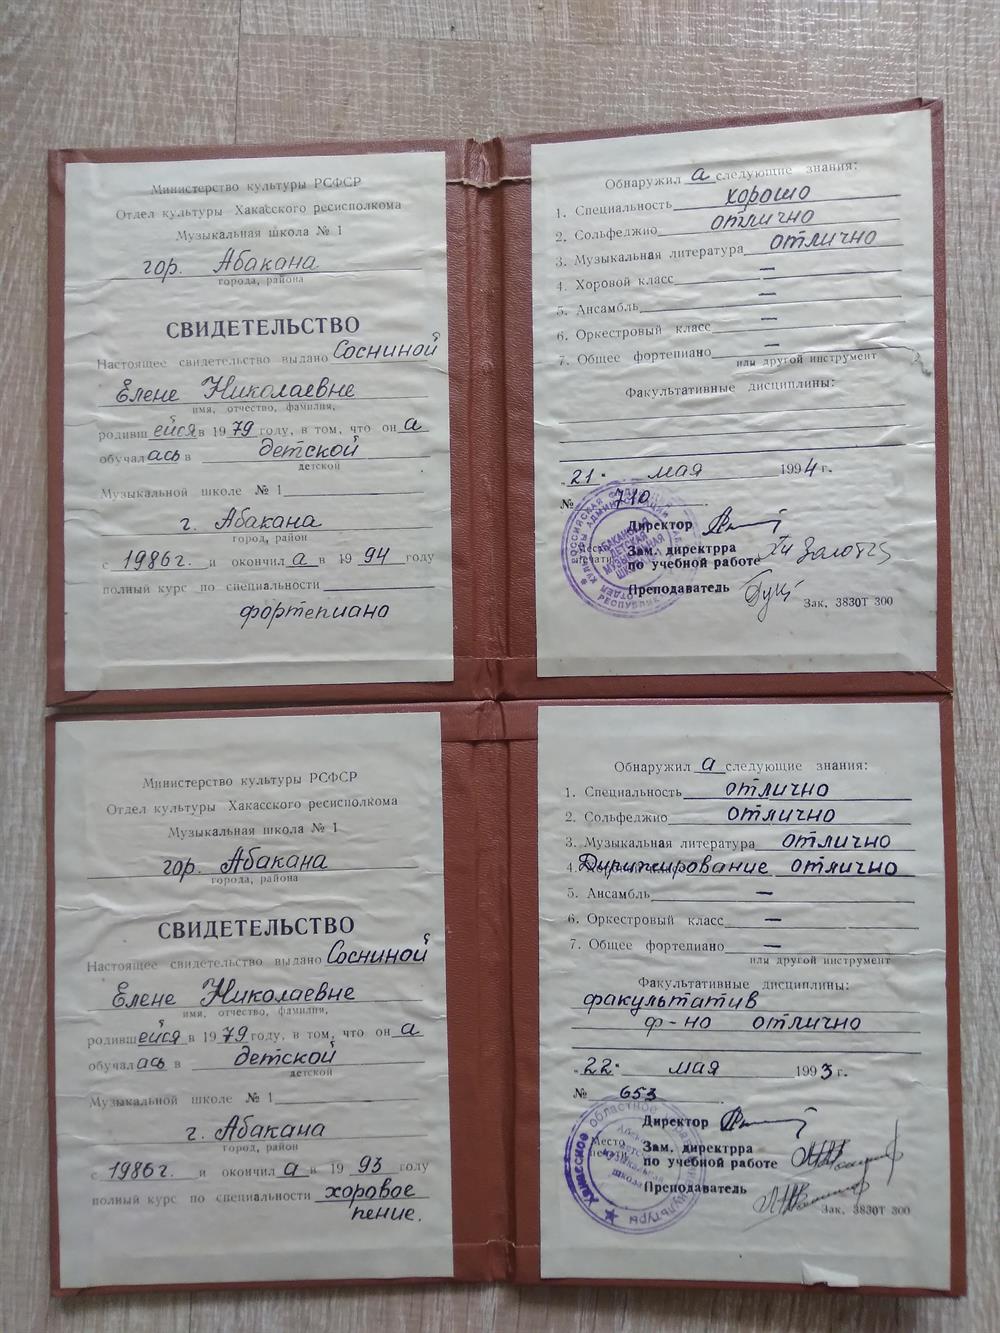 Министерство культуры РСФСР
Отдел культуры Хакасского ресисполкома
Музыкальная школа № 1
гор. Абакана
города, района
СВИДЕТЕЛЬСТВО
Настоящее свидетельство выдано Сосниной
Елене Николаевне
имя, отчество, фамилия,
родивш ейся в 19 79 году, в том, что он а
обучал ась в детской
детской
Музыкальной школе № 1
г. Абакана
город, район
с 1986 г. и окончил а в 19 94 году
полный курс по специальности
фортепиано
Обнаружил а следующие знания:
1. Специальность хорошо
2. Сольфеджио отлично
3. Музыкальная литература отлично
4. Хоровой класс —
5. Ансамбль —
6. Оркестровый класс —
7. Общее фортепиано —
или другой инструмент
Факультативные дисциплины:
„21" мая 1994 г.
№ 710
Директор
Место печати
Зам. директрра
по учебной работе
Преподаватель
Зак. 3830Т 300
АБАКАНСКАЯ ДЕТСКАЯ МУЗЫКАЛЬНАЯ ШКОЛА
Министерство культуры РСФСР
Отдел культуры Хакасского ресисполкома
Музыкальная школа № 1
гор. Абакана
города, района
СВИДЕТЕЛЬСТВО
Настоящее свидетельство выдано Сосниной
Елене Николаевне
имя, отчество, фамилия,
родивш ейся в 19 79 году, в том, что он а
обучал ась в детской
детской
Музыкальной школе № 1
г. Абакана
город, район
с 1986 г. и окончил а в 19 93 году
полный курс по специальности хоровое
пение.
Обнаружил а следующие знания:
1. Специальность отлично
2. Сольфеджио отлично
3. Музыкальная литература отлично
4. Дирижирование отлично
5. Ансамбль —
6. Оркестровый класс —
7. Общее фортепиано —
или другой инструмент
Факультативные дисциплины:
факультатив
ф-но отлично
„22" мая 1993 г.
№ 653
Директор
Место печати
Зам. директрра
по учебной работе
Преподаватель
Зак. 3830Т 300